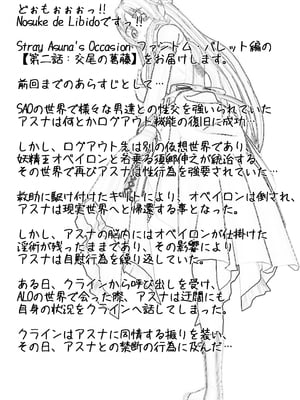 どぉもぉぉぉっ!!
Nosuke de Libidoですっ!!
Stray Asuna's Occasion ファントム・バレット編の
【第二話:交尾の葛藤】をお届けします。
前回までのあらすじとして…
SAOの世界で様々な男達との性交を強いられていた
アスナは何とかログアウト機能の復旧に成功…
しかし、ログアウト先は別の仮想世界であり、
妖精王オベイロンと名乗る須郷伸之が統治する
その世界で再びアスナは性行為を強要されていた…
救助に駆け付けたキリトにより、オベイロンは倒され、
アスナは現実世界へと帰還する事となった。
しかし、アスナの脳内にはオベイロンが仕掛けた
淫術が残ったままであり、その影響により
アスナは自慰行為を繰り返していた。
ある日、クラインから呼び出しを受け、
ALOの世界で会った際、アスナは迂闊にも
自身の状況をクラインへ話してしまった。
クラインはアスナに同情する振りを装い、
その日、アスナとの禁断の行為に及んだ…